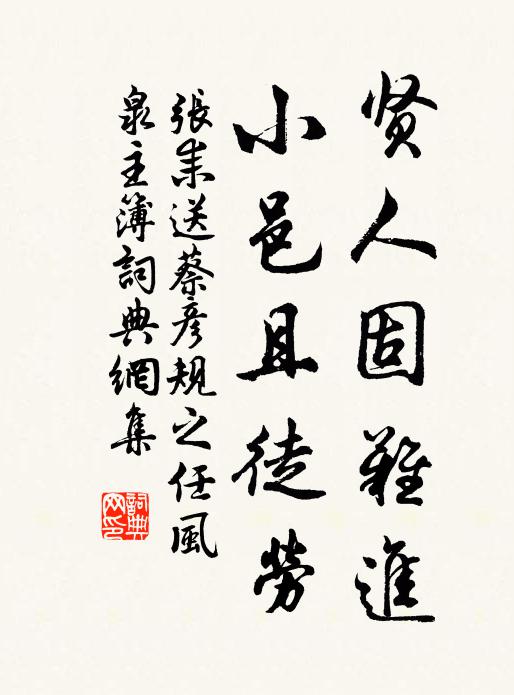 贤人固難進
小邑且徒勞
張耒送蔡彦規之任風
泉主簿詞典網集
詞典
网印